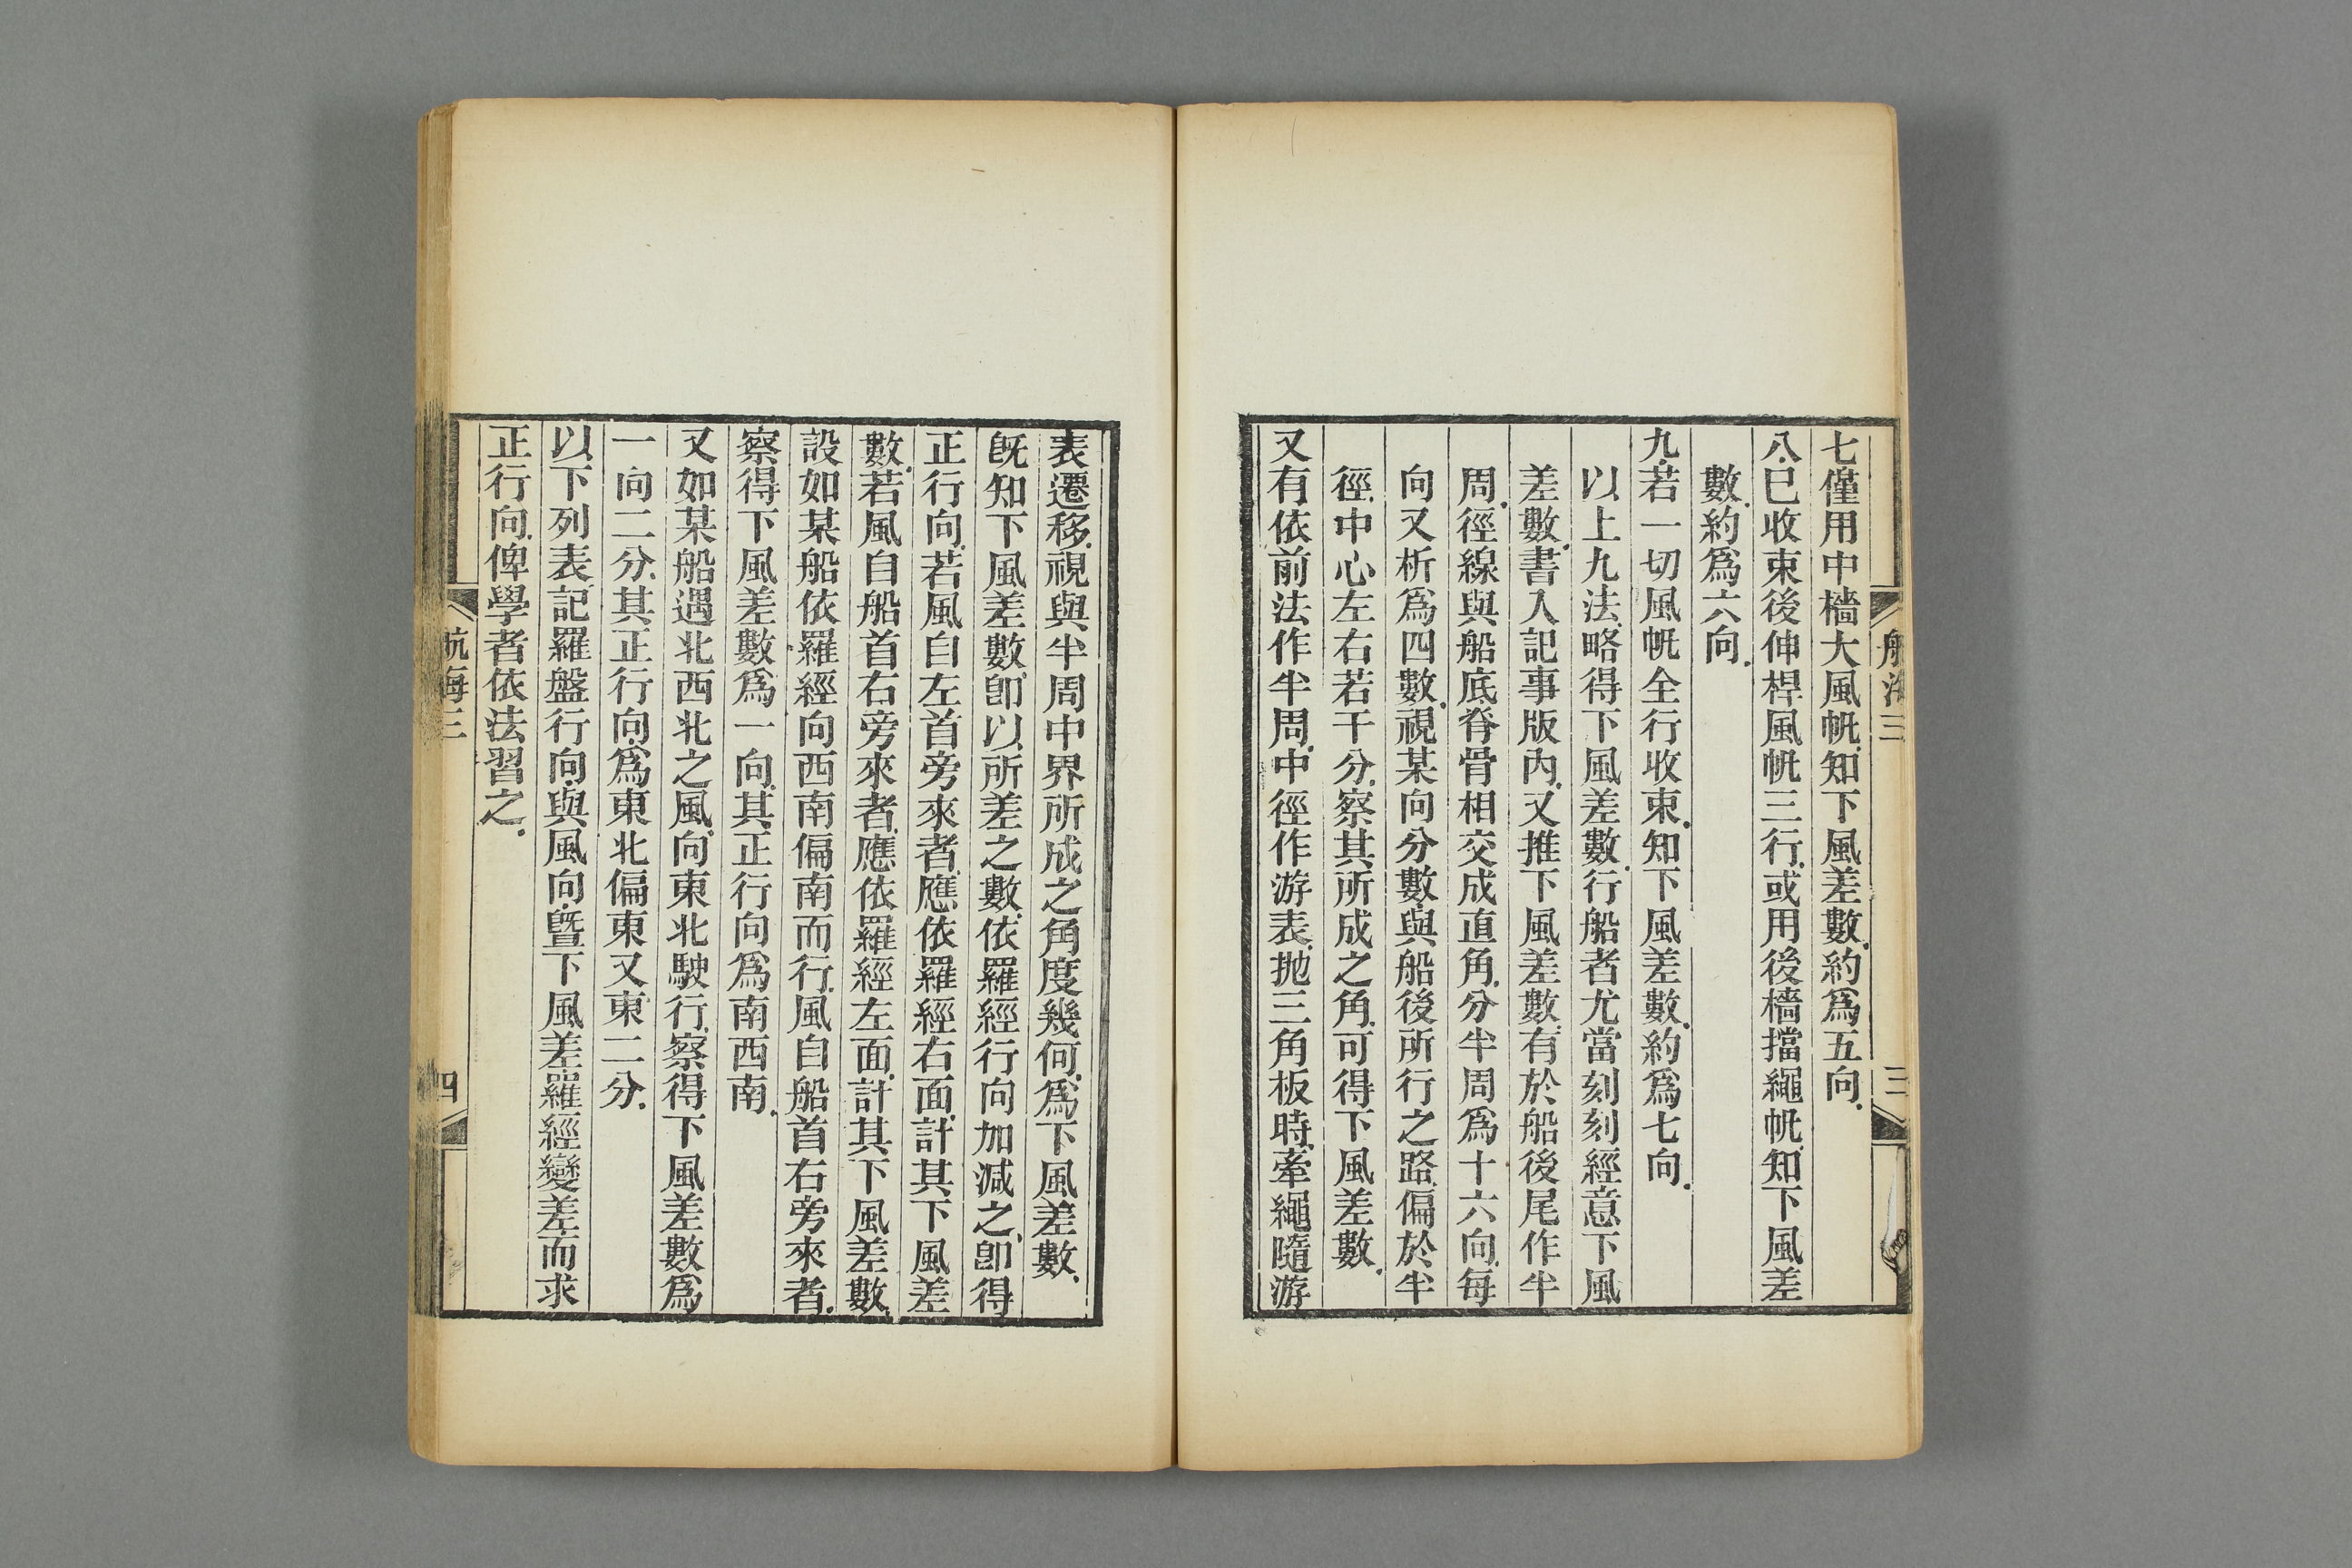 航海三
三
七僅用中檣大風帆知下風差數約爲五向
八已收束後伸桿風帆三行或用後檣擋繩帆知下風差
數約爲六向
九若一切風帆全行收束知下風差數約爲七向
以上九法略得下風差數行船者尤當刻刻經意下風
差數書入記事版內又推下風差數有於船後尾作半
周徑線與船底脊骨相交成直角分半周爲十六向每
向又析爲四數視某向分數與船後所行之路偏於半
徑中心左右若干分察其所成之角可得下風差數
又有依前法作半周中徑作游表拋三角板時牽繩隨游
表遷移視與半周中界所成之角度幾何爲下風差數
旣知下風差數卽以所差之數依羅經行向加減之卽得
正行向若風自左首旁來者應依羅經右面計其下風差
數若風自船首右旁來者應依羅經左面計其下風差數
設如某船依羅經向西南偏南而行風自船首右旁來者
察得下風差數爲一向其正行向爲南西南
又如某船遇北西北之風向東北駛行察得下風差數爲
一向二分其正行向爲東北偏東又東二分
以下列表記羅盤行向與風向曁下風差羅經變差而求
正行向俾學者依法習之
航海三
四